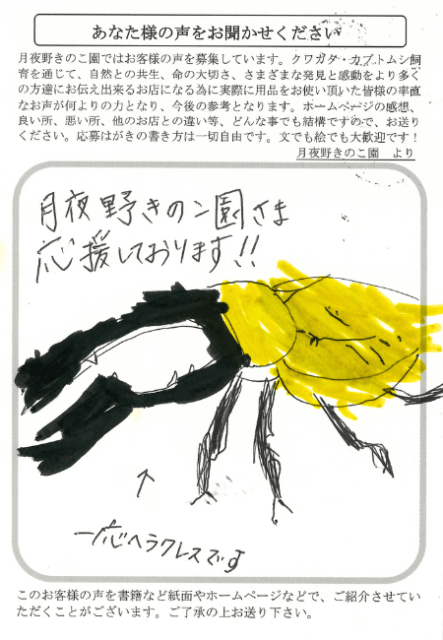 あなた様の声をお聞かせください
月夜野きのこ園ではお客様の声を募集しています。クワガタ・カブトムシ飼
育を通じて、自然との共生、命の大切さ、さまざまな発見と感動をより多く
の方達にお伝え出来るお店になる為に実際に用品をお使い頂いた皆様の率直
なお声が何よりの力となり、今後の参考となります。ホームページの感想、
良い所、悪い所、他のお店との違い等、どんな事でも結構ですので、お送り
ください。応募はがきの書き方は一切自由です。文でも絵でも大歓迎です！
月夜野きのこ園　より
月夜野きのこ園さま
応援しております!!
一応ヘラクレスです
このお客様の声を書籍など紙面やホームページなどで、ご紹介させてい
ただくことがございます。ご了承の上お送り下さい。